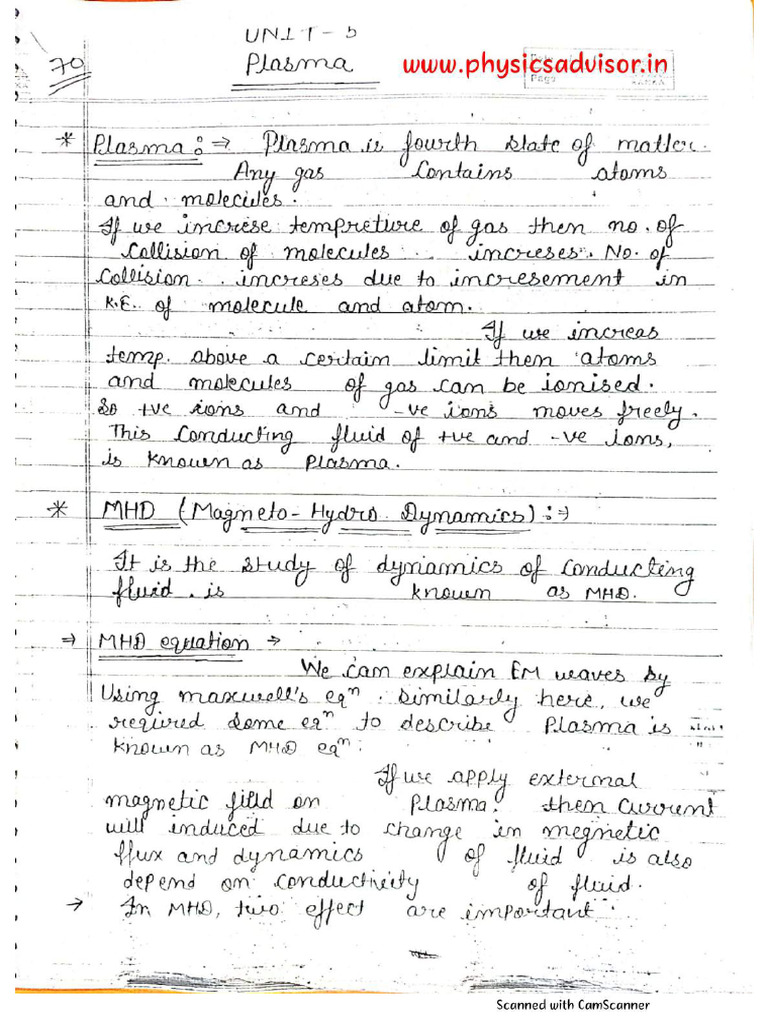 UNIT - 5
70
Plasma
www.physicsadvisor.in
Page
* Plasma :⇒ Plasma is fourth state of matter.
Any gas Contains atoms
and molecules.
If we increse tempreture of gas then no. of
Collision of molecules increses. No. of
Collision increses due to incresement in
K.E. of molecule and atom.
If we increas
temp. above a certain limit then atoms
and molecules of gas can be ionised.
So +ve ions and -ve ions moves freely.
This Conducting fluid of +ve and -ve ions,
is known as plasma.
* MHD (Magneto-Hydro Dynamics) :→
It is the study of dyniamics of conducting
fluid. is known as MHD.
⇒ MHD equation →
We can explain EM waves by
Using maxwell's eqⁿ. similarly here, we
required some eqⁿ to describe Plasma is
known as MHD eqⁿ.
If we apply external
magnetic filld on Plasma. then Current
will induced due to change in megnetic
fflux and dynamics of fluid is also
depend on conductivity of fluid.
→ In MHD, two effect are important :
Scanned with CamScanner